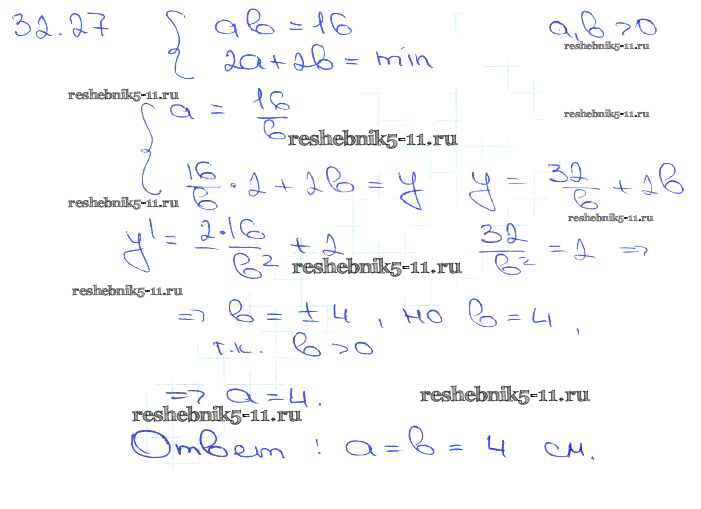 32.27 { ab = 16 a,b > 0
2a + 2b = min
reshebnik5-11.ru
reshebnik5-11.ru
{ a = 16/b
reshebnik5-11.ru
reshebnik5-11.ru
16/b · 2 + 2b = y y = 32/b + 2b
reshebnik5-11.ru
reshebnik5-11.ru
y' = - 2·16/b² + 2 32/b² = 2 =>
reshebnik5-11.ru
reshebnik5-11.ru
=> b = ± 4 , но b = 4 ,
т.к. b > 0
=> a = 4.
reshebnik5-11.ru
reshebnik5-11.ru
Ответ : a = b = 4 см.